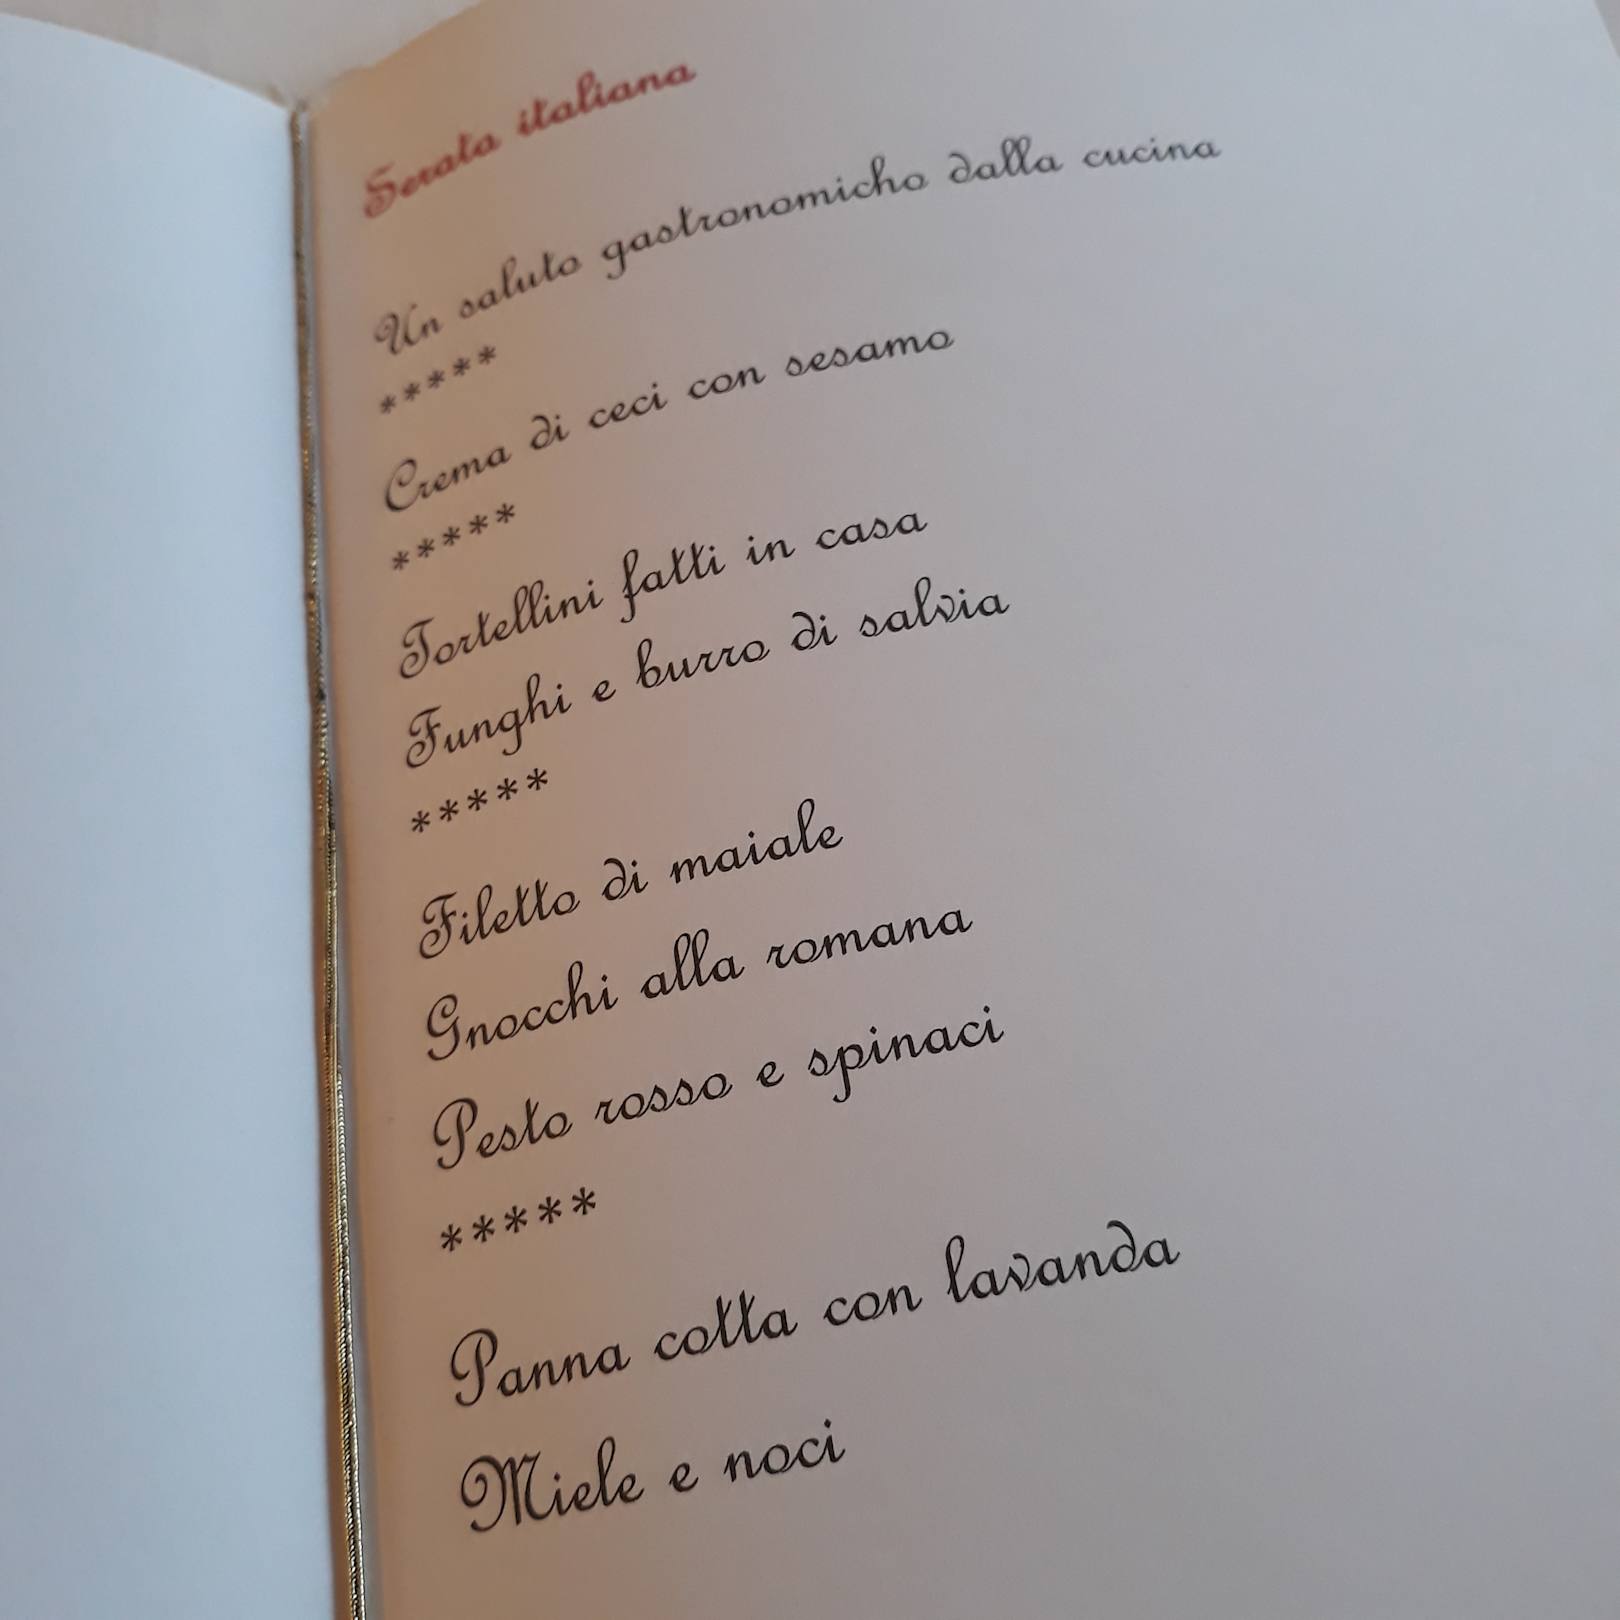 Serata italiana
Un saluto gastronomicho dalla cucina
*****
Crema di ceci con sesamo
*****
Tortellini fatti in casa
Funghi e burro di salvia
*****
Filetto di maiale
Gnocchi alla romana
Pesto rosso e spinaci
*****
Panna cotta con lavanda
Miele e noci